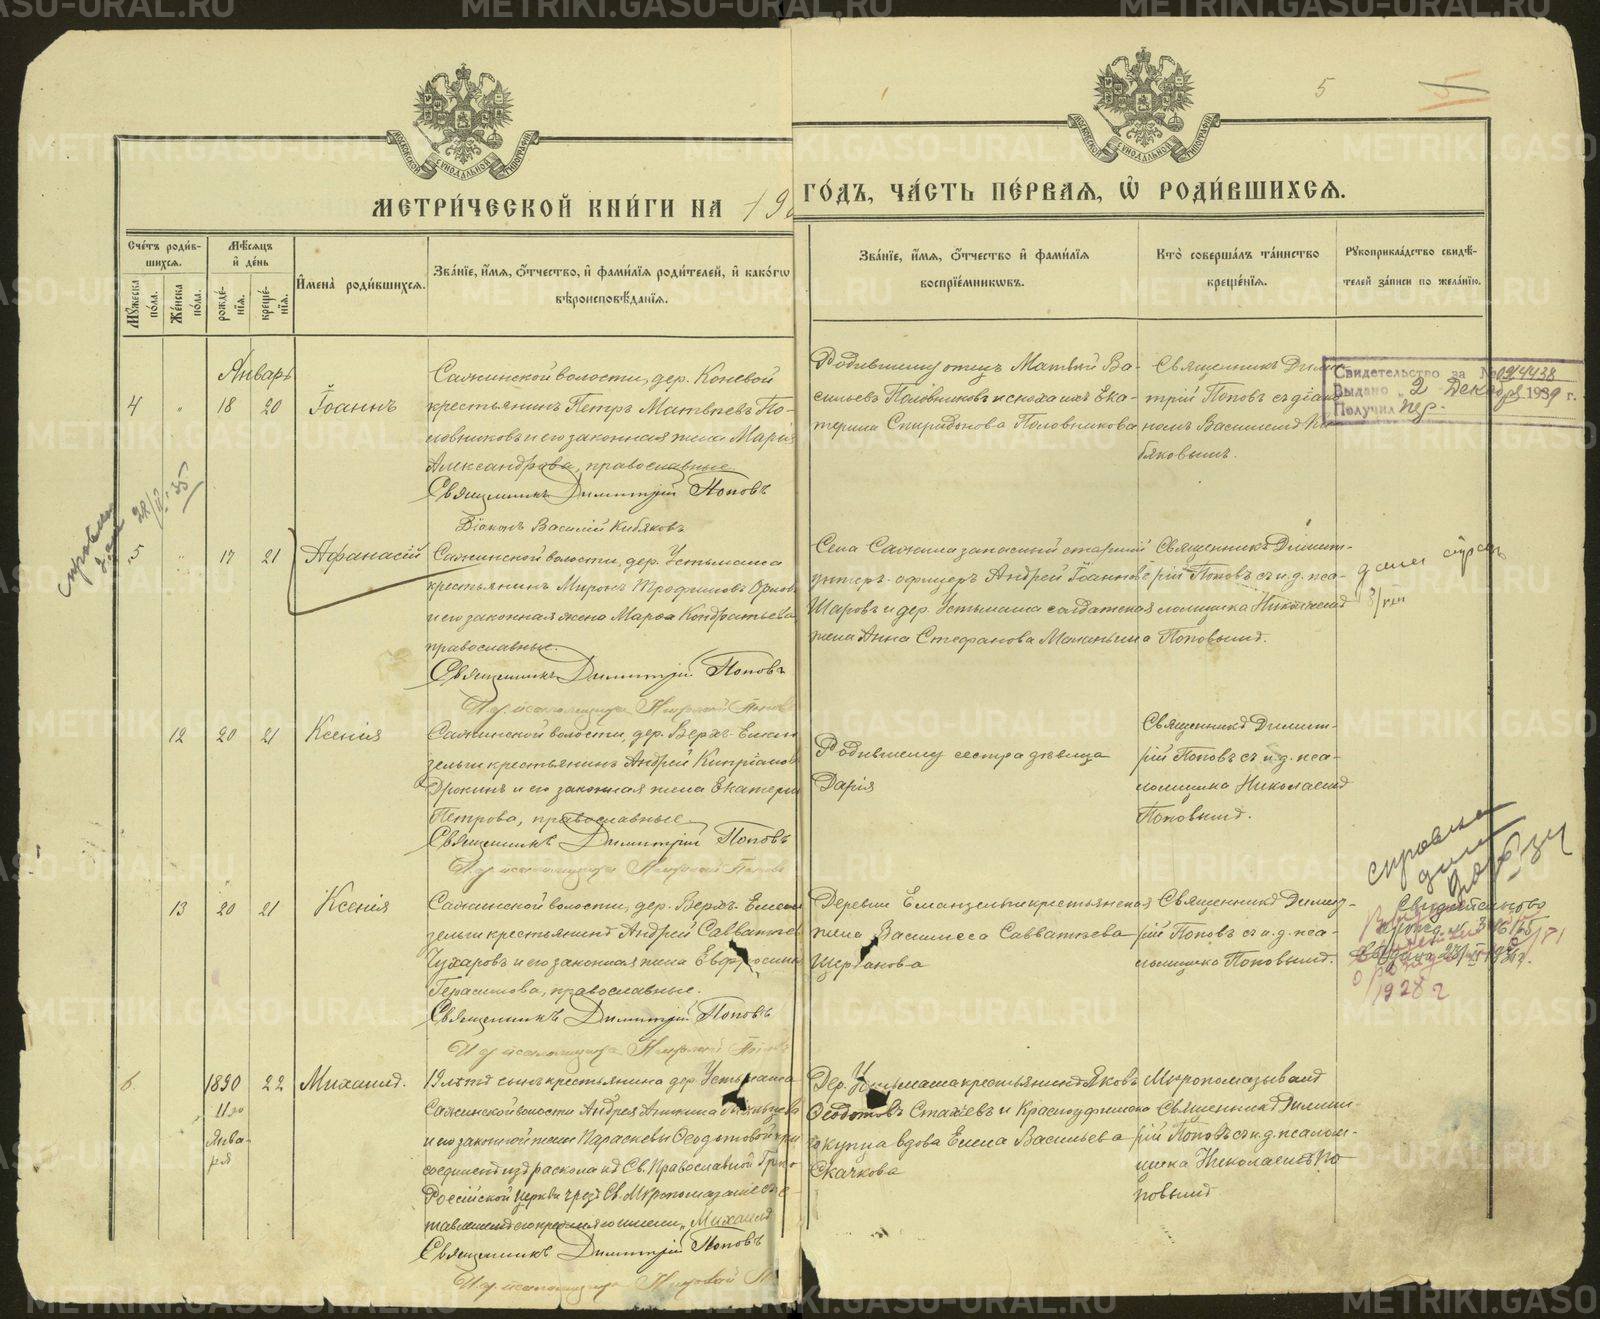 5
МЕТРИ́ЧЕСКОЙ КНИ́ГИ НА 190
ГО́ДЪ, ЧА́СТЬ ПЕ́РВАѦ, Ѽ РОДИ́ВШИХСѦ.
Сче́тъ роди́в-
шихсѧ.
Мꙋ́жеска по́ла.
Же́нска по́ла.
Мѣ́сѧцъ
и̂ де́нь
рожде́-
нїѧ.
креще́-
нїѧ.
И҆мена̀ роди́вшихсѧ.
Зва́нїе, и҆́мѧ, ѻ҆́тчество, и҆ фами́лїѧ роди́телей, и҆ како́гѡ
вѣроисповѣ́данїѧ.
Зва́нїе, и҆́мѧ, ѻ҆́тчество и҆ фами́лїѧ
воспрїе́мникѡвъ.
Кто̀ соверша́лъ та́инство
креще́нїѧ.
Рꙋкоприкла́дство свидѣ́-
телей за́писи по жела́нїю.
Январь
4 " 18 20 Іоаннъ
Сажинской волости, дер. Коневой
крестьянинъ Петръ Матвѣевъ По-
ловниковъ и его законная жена Марія
Александрова, православные.
Священникъ Димитрій Поповъ
Діаконъ Василій Кибяковъ
Родившему отецъ Матвѣй Ва-
сильевъ Половниковъ и сноха ихъ Ека-
терина Спиридонова Половникова
Священникъ Дими-
трій Поповъ съ діако-
номъ Василіемъ Ки-
бяковымъ.
Свидетельство за № 024438
Выдано „2 Декабря 1939 г.
Получил
5 " 17 21 Афанасій
Сажинской волости, дер. Устьмаша
крестьянинъ Миронъ Трофимовъ
и его законная жена Марѳа Кондратьева
православные.
Священникъ Димитрій Поповъ
И. д. псаломщика Николай Поповъ
Села Сажина запасный старшій
унтеръ-офицеръ Андрей Іоанновъ
Шаровъ и дер. Устьмаша солдатская
жена Анна Стефанова Мананьина
Священникъ Димит-
рій Поповъ съ и. д. пса-
ломщика Николаемъ
Поповымъ.
12 20 21 Ксенія
Сажинской волости, дер. Верх-Еман
зельги крестьянинъ Андрей Кипріановъ
Дрокинъ и его законная жена Екатерина
Петрова, православные.
Священникъ Димитрій Поповъ
И. д. псаломщика Николай Поповъ
Родившему сестра дѣвица
Дарія
Священникъ Димит-
рій Поповъ съ и. д. пса-
ломщика Николаемъ
Поповымъ.
справка
13 20 21 Ксенія
Сажинской волости, дер. Верх. Еман
зельги крестьянинъ Андрей Савватѣев
Чухаровъ и его законная жена Евфросинія
Герасимова, православные.
Священникъ Димитрій Поповъ
И. д. псаломщика Николай Поповъ
Деревни Еманзельги крестьянская
жена Василисса Савватѣева
Щербакова
Священникъ Димит-
рій Поповъ съ и. д. пса-
ломщика Поповымъ.
Свидетельство
1928 г
6. 1890 22 Михаилъ.
11го
Янва-
ря
19 лѣтъ сынъ крестьянина дер. Устьмаша
Сажинской волости Андрея
и его законной жены Параскевы Ѳеодотовой при
соединенъ изъ раскола къ Св. Православной Греко-
Россійской Церкви чрезъ Св. Мѵропомазаніе съ о-
ставленіемъ его прежняго имени „Михаилъ
Священникъ Димитрій Поповъ
И. д. псаломщика Николай
Дер. Устьмаша крестьянинъ Яковъ
Ѳеодотовъ Стахѣевъ и Красноуфимска
го купца вдова Елена Васильева
Скачкова
Мѵропомазывалъ
Священникъ Димит-
рій Поповъ съ и. д. псалом-
щика Николаемъ По
повымъ
METRIKI.GASO-URAL.RU